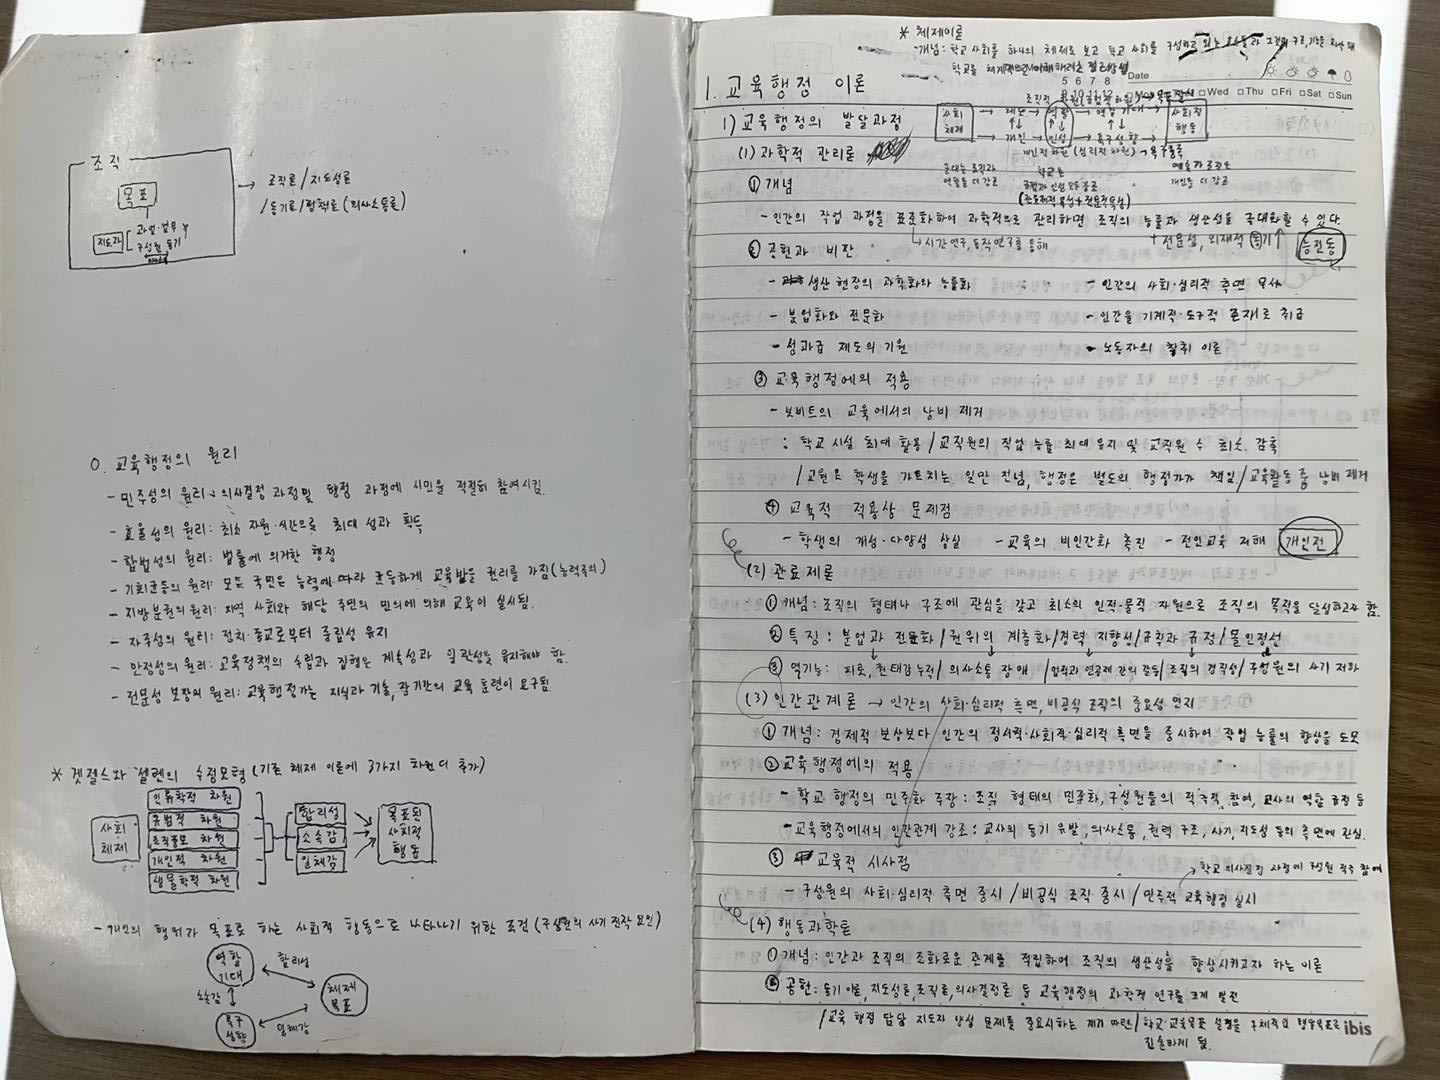 조직
목표
지도자
과업·업무
구성원 동기
→ 조직론/지도성론
/동기론/정책론(의사소통론)
0. 교육행정의 원리
- 민주성의 원리: 의사결정 과정 및 행정 과정에 시민을 적절히 참여시킴.
- 효율성의 원리: 최소 자원·시간으로 최대 성과 획득
- 합법성의 원리: 법률에 의거한 행정
- 기회균등의 원리: 모든 국민은 능력에 따라 균등하게 교육받을 권리를 가짐(능력주의)
- 지방분권의 원리: 지역 사회와 해당 주민의 민의에 의해 교육이 실시됨.
- 자주성의 원리: 정치·종교로부터 중립성 유지
- 안정성의 원리: 교육정책의 수립과 집행은 계속성과 일관성을 유지해야 함.
- 전문성 보장의 원리: 교육행정가는 지식과 기술, 장기간의 교육 훈련이 요구됨
* 겟젤스와 셀렌의 수정모형(기존 체제 이론에 3가지 차원 더 추가)
사회 체제
인류학적 차원
규범적 차원
조직풍토 차원
개인적 차원
생물학적 차원
합리성
소속감
일체감
목표된 사회적 행동
- 개인의 행위가 목표로 하는 사회적 행동으로 나타나기 위한 조건(구성원의 사기 진작 요인)
역할 기대
합리성
체제 목표
소속감
욕구 성향
일체감
* 체제이론
- 개념: 학교 사회를 하나의 체제로 보고 학교 사회를 구성하고 있는 요소들과 그것의 구조, 기능을
학교를
5 6 7 8
Date
Wed Thu Fri Sat Sun
1. 교육행정 이론
사회 체제 → 제도 → 역할 → 역할 기대 → 사회적 행동
→ 개인 → 인성 → 욕구성향 →
개인적 차원(심리적 차원) → 욕구충족
1) 교육행정의 발달과정
(1) 과학적 관리론
군대는 조직과 역할을 더 강조
학교는 역할과 인성 모두 강조
(관료제적 특성 + 전문적 특성)
예술가 조직은 개인을 더 강조
① 개념
- 인간의 작업 과정을 표준화하여 과학적으로 관리하면 조직의 능률과 생산성을 극대화할 수 있다
↳ 시간연구, 동작연구를 통해
+ 전문성, 외재적 동기↑
능전동
② 공헌과 비판
- 생산 현장의 과학화와 능률화
- 인간의 사회·심리적 측면 무시
- 분업화와 전문화
- 인간을 기계적·도구적 존재로 취급
- 성과급 제도의 기원
- 노동자의 착취 이론
③ 교육행정에의 적용
- 보비트의 교육에서의 낭비 제거
: 학교 시설 최대 활용/교직원의 작업 능률 최대 유지 및 교직원 수 최소 감축
/교원은 학생을 가르치는 일만 전념, 행정은 별도의 행정가가 책임/교육활동 중 낭비 제거
④ 교육적 적용상 문제점
- 학생의 개성·다양성 상실
- 교육의 비인간화 촉진
- 전인교육 저해
개인전
(2) 관료제론
① 개념: 조직의 형태나 구조에 관심을 갖고 최소의 인적·물적 자원으로 조직의 목적을 달성하고자 함.
② 특징: 분업과 전문화/권위의 계층화/경력 지향성/규칙과 규정/몰인정성
③ 역기능: 피로, 권태감 누적/의사소통 장애/업적과 연공제 간의 갈등/조직의 경직성/구성원의 사기 저하
(3) 인간관계론 → 인간의 사회·심리적 측면, 비공식 조직의 중요성 인지
① 개념: 경제적 보상보다 인간의 정서적·사회적·심리적 측면을 중시하여 작업 능률의 향상을 도모
② 교육행정에의 적용
- 학교 행정의 민주화 주장: 조직 형태의 민주화, 구성원들의 적극적 참여, 교사의 역할 규정 등
- 교육행정에서의 인간관계 강조: 교사의 동기 유발, 의사소통, 권력 구조, 사기, 지도성 등의 측면에 관심.
③ 교육적 시사점
→ 학교 의사결정 과정에 구성원 적극 참여
- 구성원의 사회·심리적 측면 중시/비공식 조직 중시/민주적 교육행정 실시
(4) 행동과학론
① 개념: 인간과 조직의 조화로운 관계를 정립하여 조직의 생산성을 향상시키고자 하는 이론
② 공헌: 동기 이론, 지도성론, 조직론, 의사결정론 등 교육행정의 과학적 연구를 크게 발전
/교육 행정 담당 지도자 양성 문제를 중요시하는 계기 마련/학교 교육목표 설정을 구체적인 행동목표로
진술하게 됨.
ibis